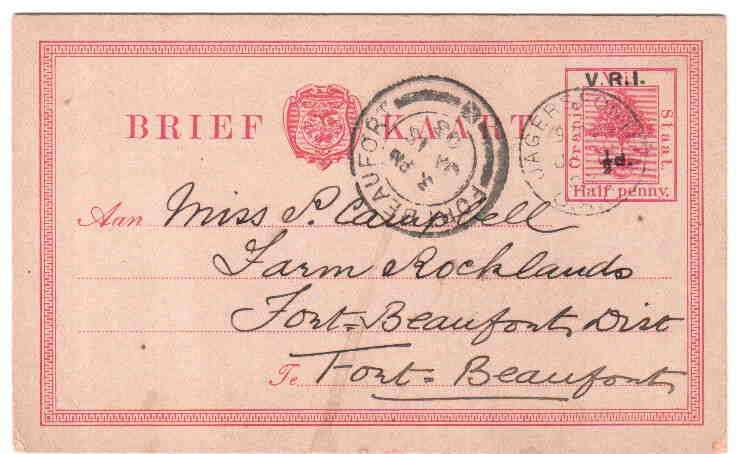 V.R.I.
BRIEF KAART
FORT BEAUFORT
PM
JAGERS
Oranje
Staat.
½d.
Half penny.
Aan Miss P. Campbell
Farm Rocklands
Fort-Beaufort, Dist
Te Fort-Beaufort